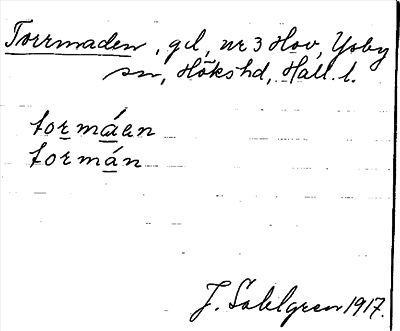 Torrmaden, gd, nr 3 Hov, Ysby
sn, Hökshd, Hall. l.
tormáen
tormán
J. Sahlgren 1917.